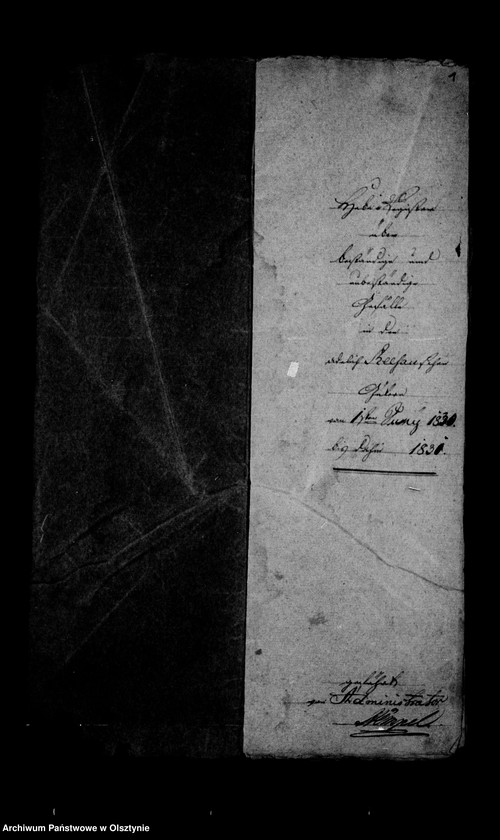 1
Hebe-Register
über
beständige und
unbeständige
Gefälle
in den
adelich schen
Gütern
von 1sten Juny 1830.
bis dahin 1831.
geführt
vom Administrator
Archiwum Państwowe w Olsztynie